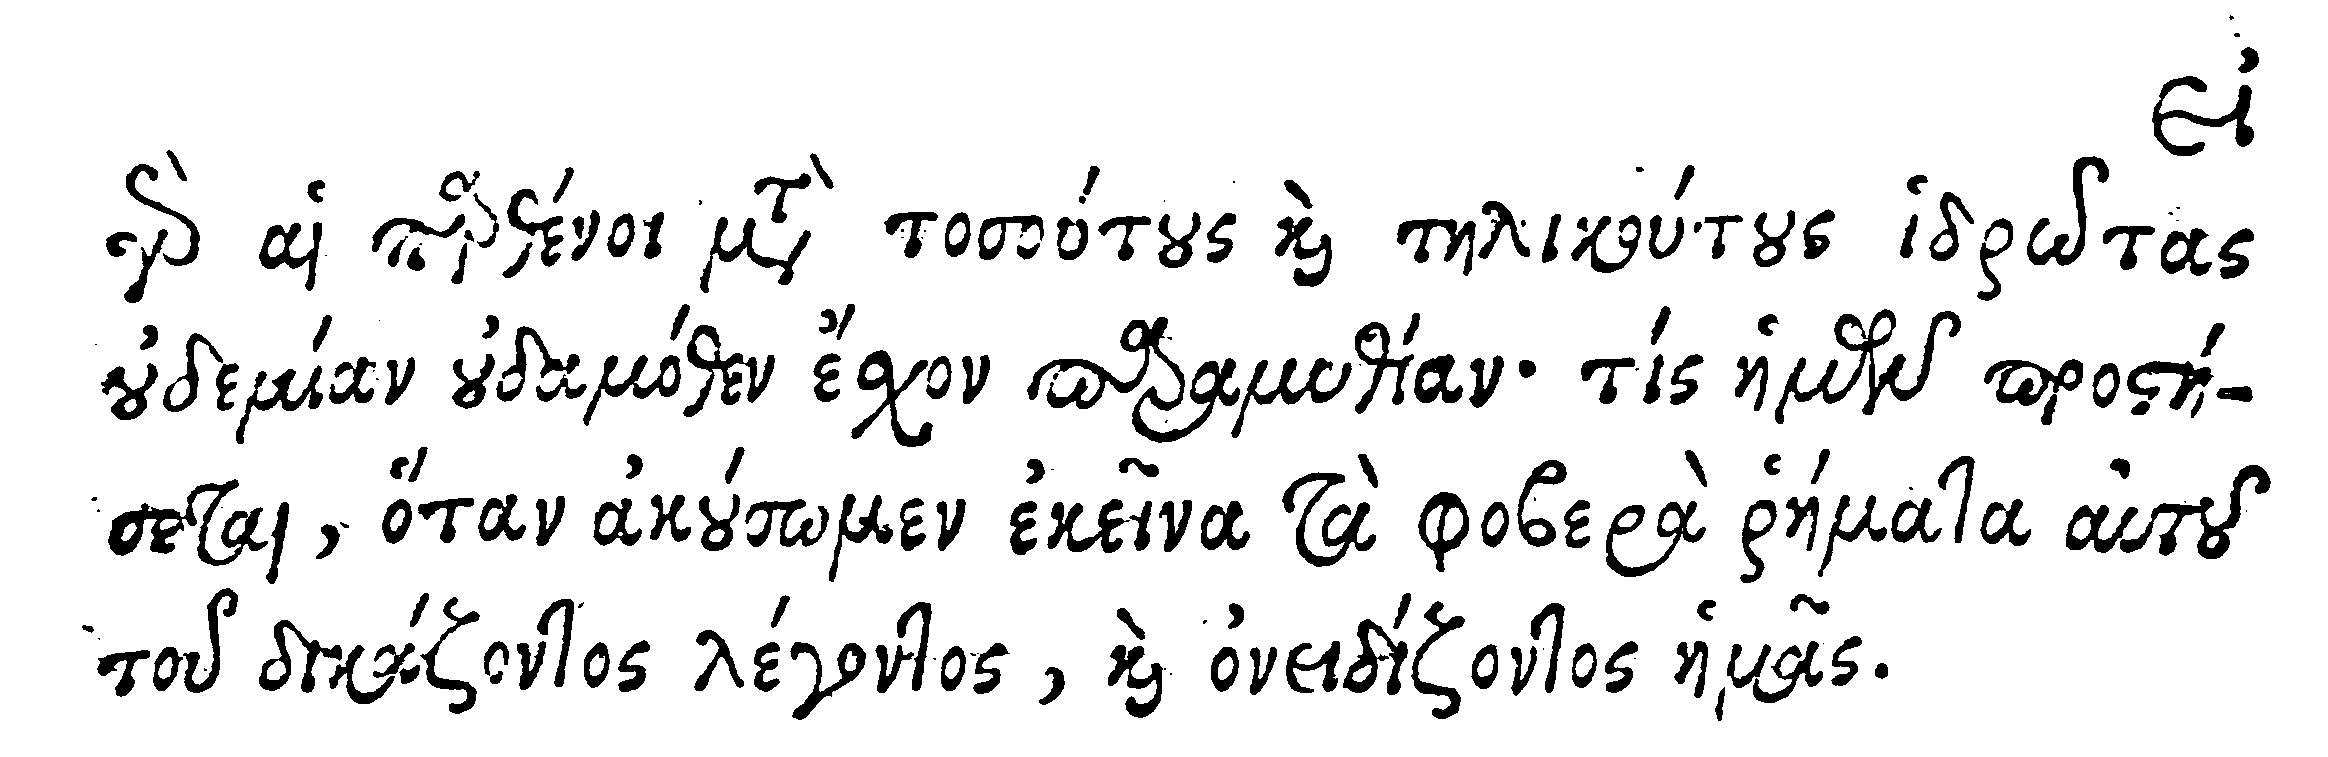 εἰ
γὰρ αἱ παρθένοι μετὰ τοσούτους καὶ τηλικούτους ἱδρῶτας
οὐδεμίαν οὐδαμόθεν ἔχον παραμυθίαν· τίς ἡμῶν προστή-
σεται, ὅταν ἀκούσωμεν ἐκεῖνα τὰ φοβερὰ ῥήματα αὐτοῦ
τοῦ δικάζοντος λέγοντος, καὶ ὀνειδίζοντος ἡμᾶς.